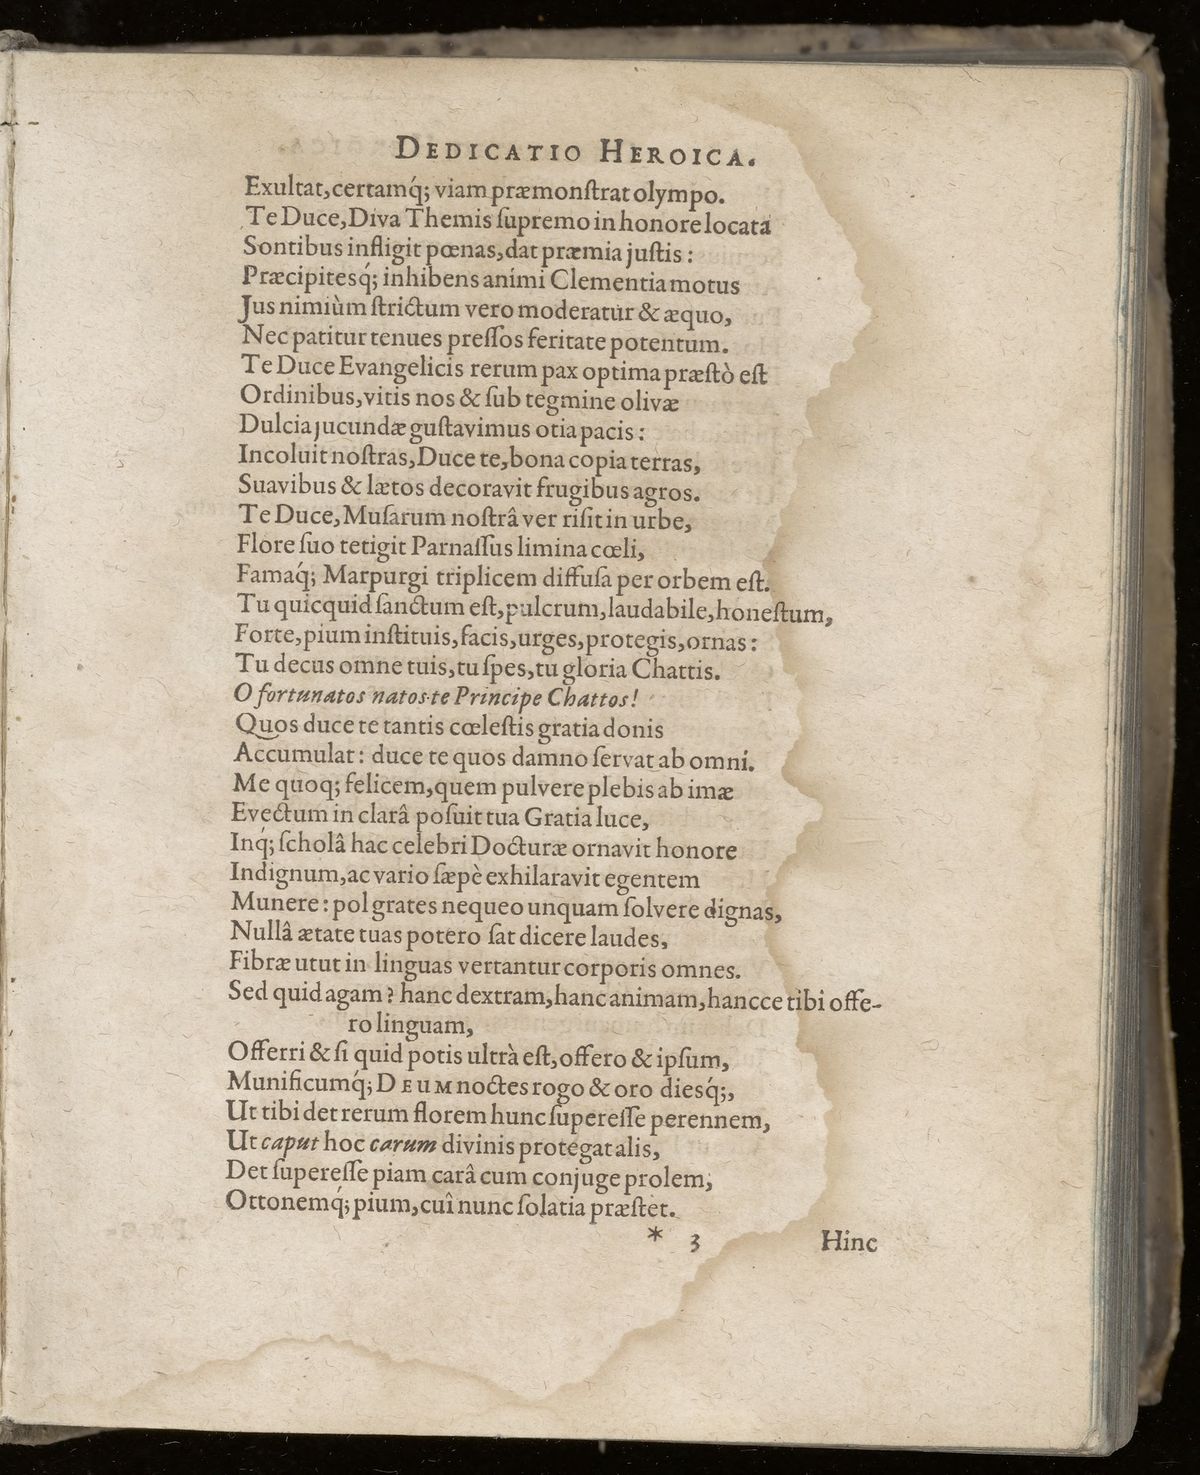 DEDICATIO HEROICA.
Exultat, certamq́; viam præmonſtrat olympo.
Te Duce, Diva Themis ſupremo in honore locata
Sontibus infligit pœnas, dat præmia juſtis:
Præcipitesq́; inhibens animi Clementia motus
Jus nimiùm ſtrictum vero moderatur & æquo,
Nec patitur tenues preſſos feritate potentum.
Te Duce Evangelicis rerum pax optima præſtò eſt
Ordinibus, vitis nos & ſub tegmine olivæ
Dulcia jucundæ guſtavimus otia pacis:
Incoluit noſtras, Duce te, bona copia terras,
Suavibus & lætos decoravit frugibus agros.
Te Duce, Muſarum noſtrâ ver riſit in urbe,
Flore ſuo tetigit Parnaſſus limina cœli,
Famaq́; Marpurgi triplicem diffuſa per orbem eſt.
Tu quicquid ſanctum eſt, pulcrum, laudabile, honeſtum,
Forte, pium inſtituis, facis, urges, protegis, ornas:
Tu decus omne tuis, tu ſpes, tu gloria Chattis.
O fortunatos natos te Principe Chattos!
Quos duce te tantis cœleſtis gratia donis
Accumulat: duce te quos damno ſervat ab omni.
Me quoq; felicem, quem pulvere plebis ab imæ
Evectum in clarâ poſuit tua Gratia luce,
Inq́; ſcholâ hac celebri Docturæ ornavit honore
Indignum, ac vario ſæpè exhilaravit egentem
Munere: pol grates nequeo unquam ſolvere dignas,
Nullâ ætate tuas potero ſat dicere laudes,
Fibræ utut in linguas vertantur corporis omnes.
Sed quid agam? hanc dextram, hanc animam, hancce tibi offe-
ro linguam,
Offerri & ſi quid potis ultrà eſt, offero & ipſum,
Munificumq́; DEUM noctes rogo & oro diesq́;,
Ut tibi det rerum florem hunc ſupereſſe perennem,
Ut caput hoc carum divinis protegat alis,
Det ſupereſſe piam carâ cum conjuge prolem,
Ottonemq́; pium, cui nunc ſolatia præſtet.
* 3 Hinc